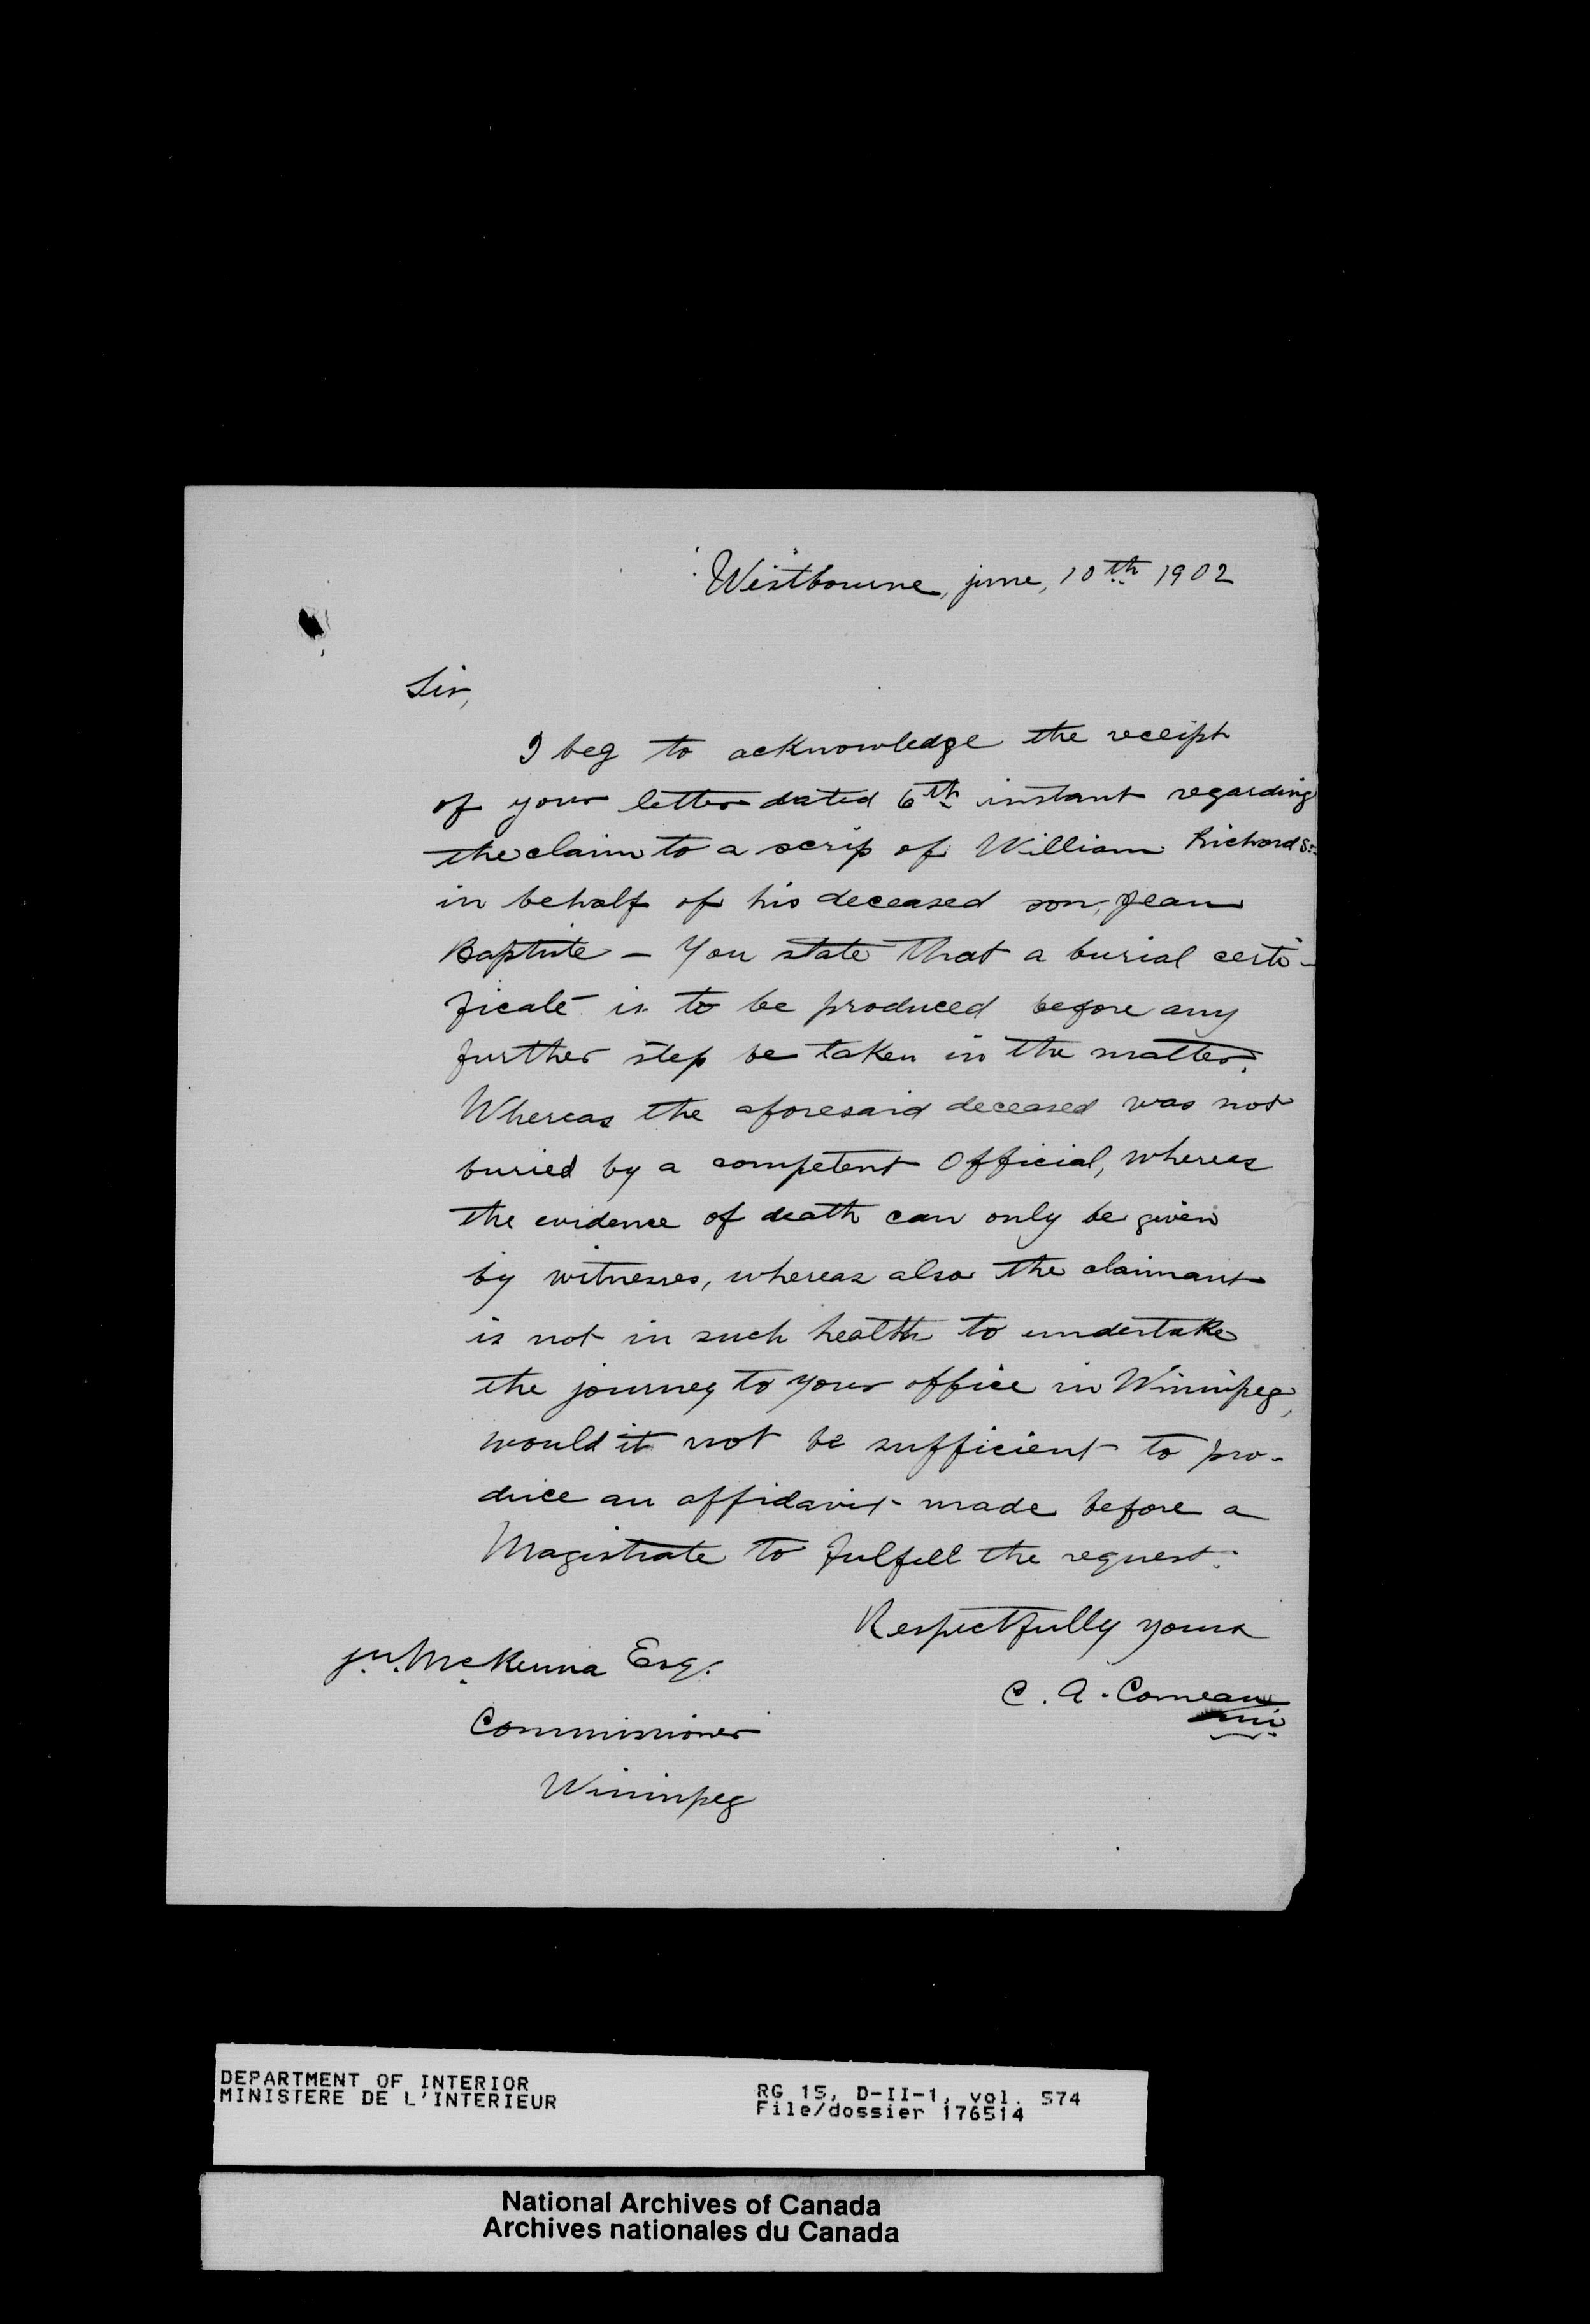 Westbourne, june, 10th 1902
Sir,
I beg to acknowledge the receipt
of your letter dated 6th instant regarding
the claim to a scrip of William Richard Sr
in behalf of his deceased son, Jean
Baptiste - You state that a burial certi-
ficate is to be produced before any
further step be taken in the matter.
Whereas the aforesaid deceased was not
buried by a competent Official, whereas
the evidence of death can only be given
by witnesses, whereas also the claimant
is not in such health to undertake
the journey to your office in Winnipeg,
would it not be sufficient to pro-
duce an affidavit made before a
Magistrate to fulfill the request.
Respectfully yours
McKenna Esq.
C. A. Comeau
Commissioner
Winnipeg
DEPARTMENT OF INTERIOR
MINISTERE DE L'INTERIEUR
RG 15, D-II-1, vol. 574
File/dossier 176514
National Archives of Canada
Archives nationales du Canada